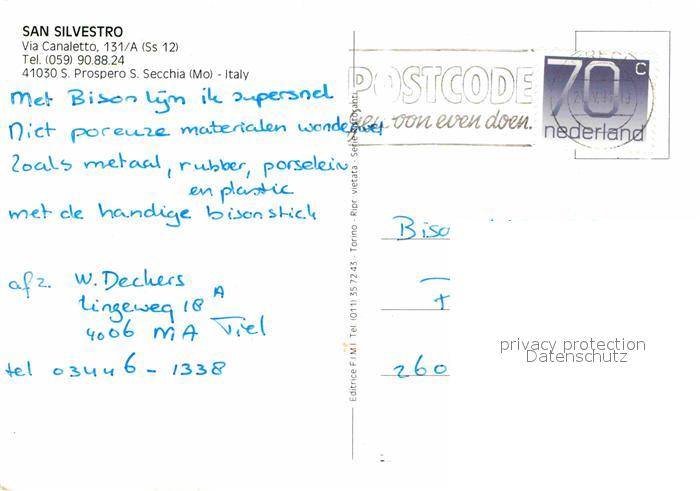 SAN SILVESTRO
Via Canaletto, 131/A (Ss 12)
Tel. (059) 90.88.24
41030 S. Prospero S. Secchia (Mo) - Italy
Met Bison lijm ik supersnel
Niet poreuze materialen wonderwel
Zoals metaal, rubber, porselein
en plastic
met de handige bisonstick
afz. W. Deckers
Lingeweg 18 A
4006 MA Tiel
tel 03446 - 1338
Editrice F.I.M.I. Tel. (011) 35.72.43 - Torino - Ripr. vietata - Serie
POSTCODE
oon even doen.
70 c
nederland
Biso
260
privacy protection
Datenschutz